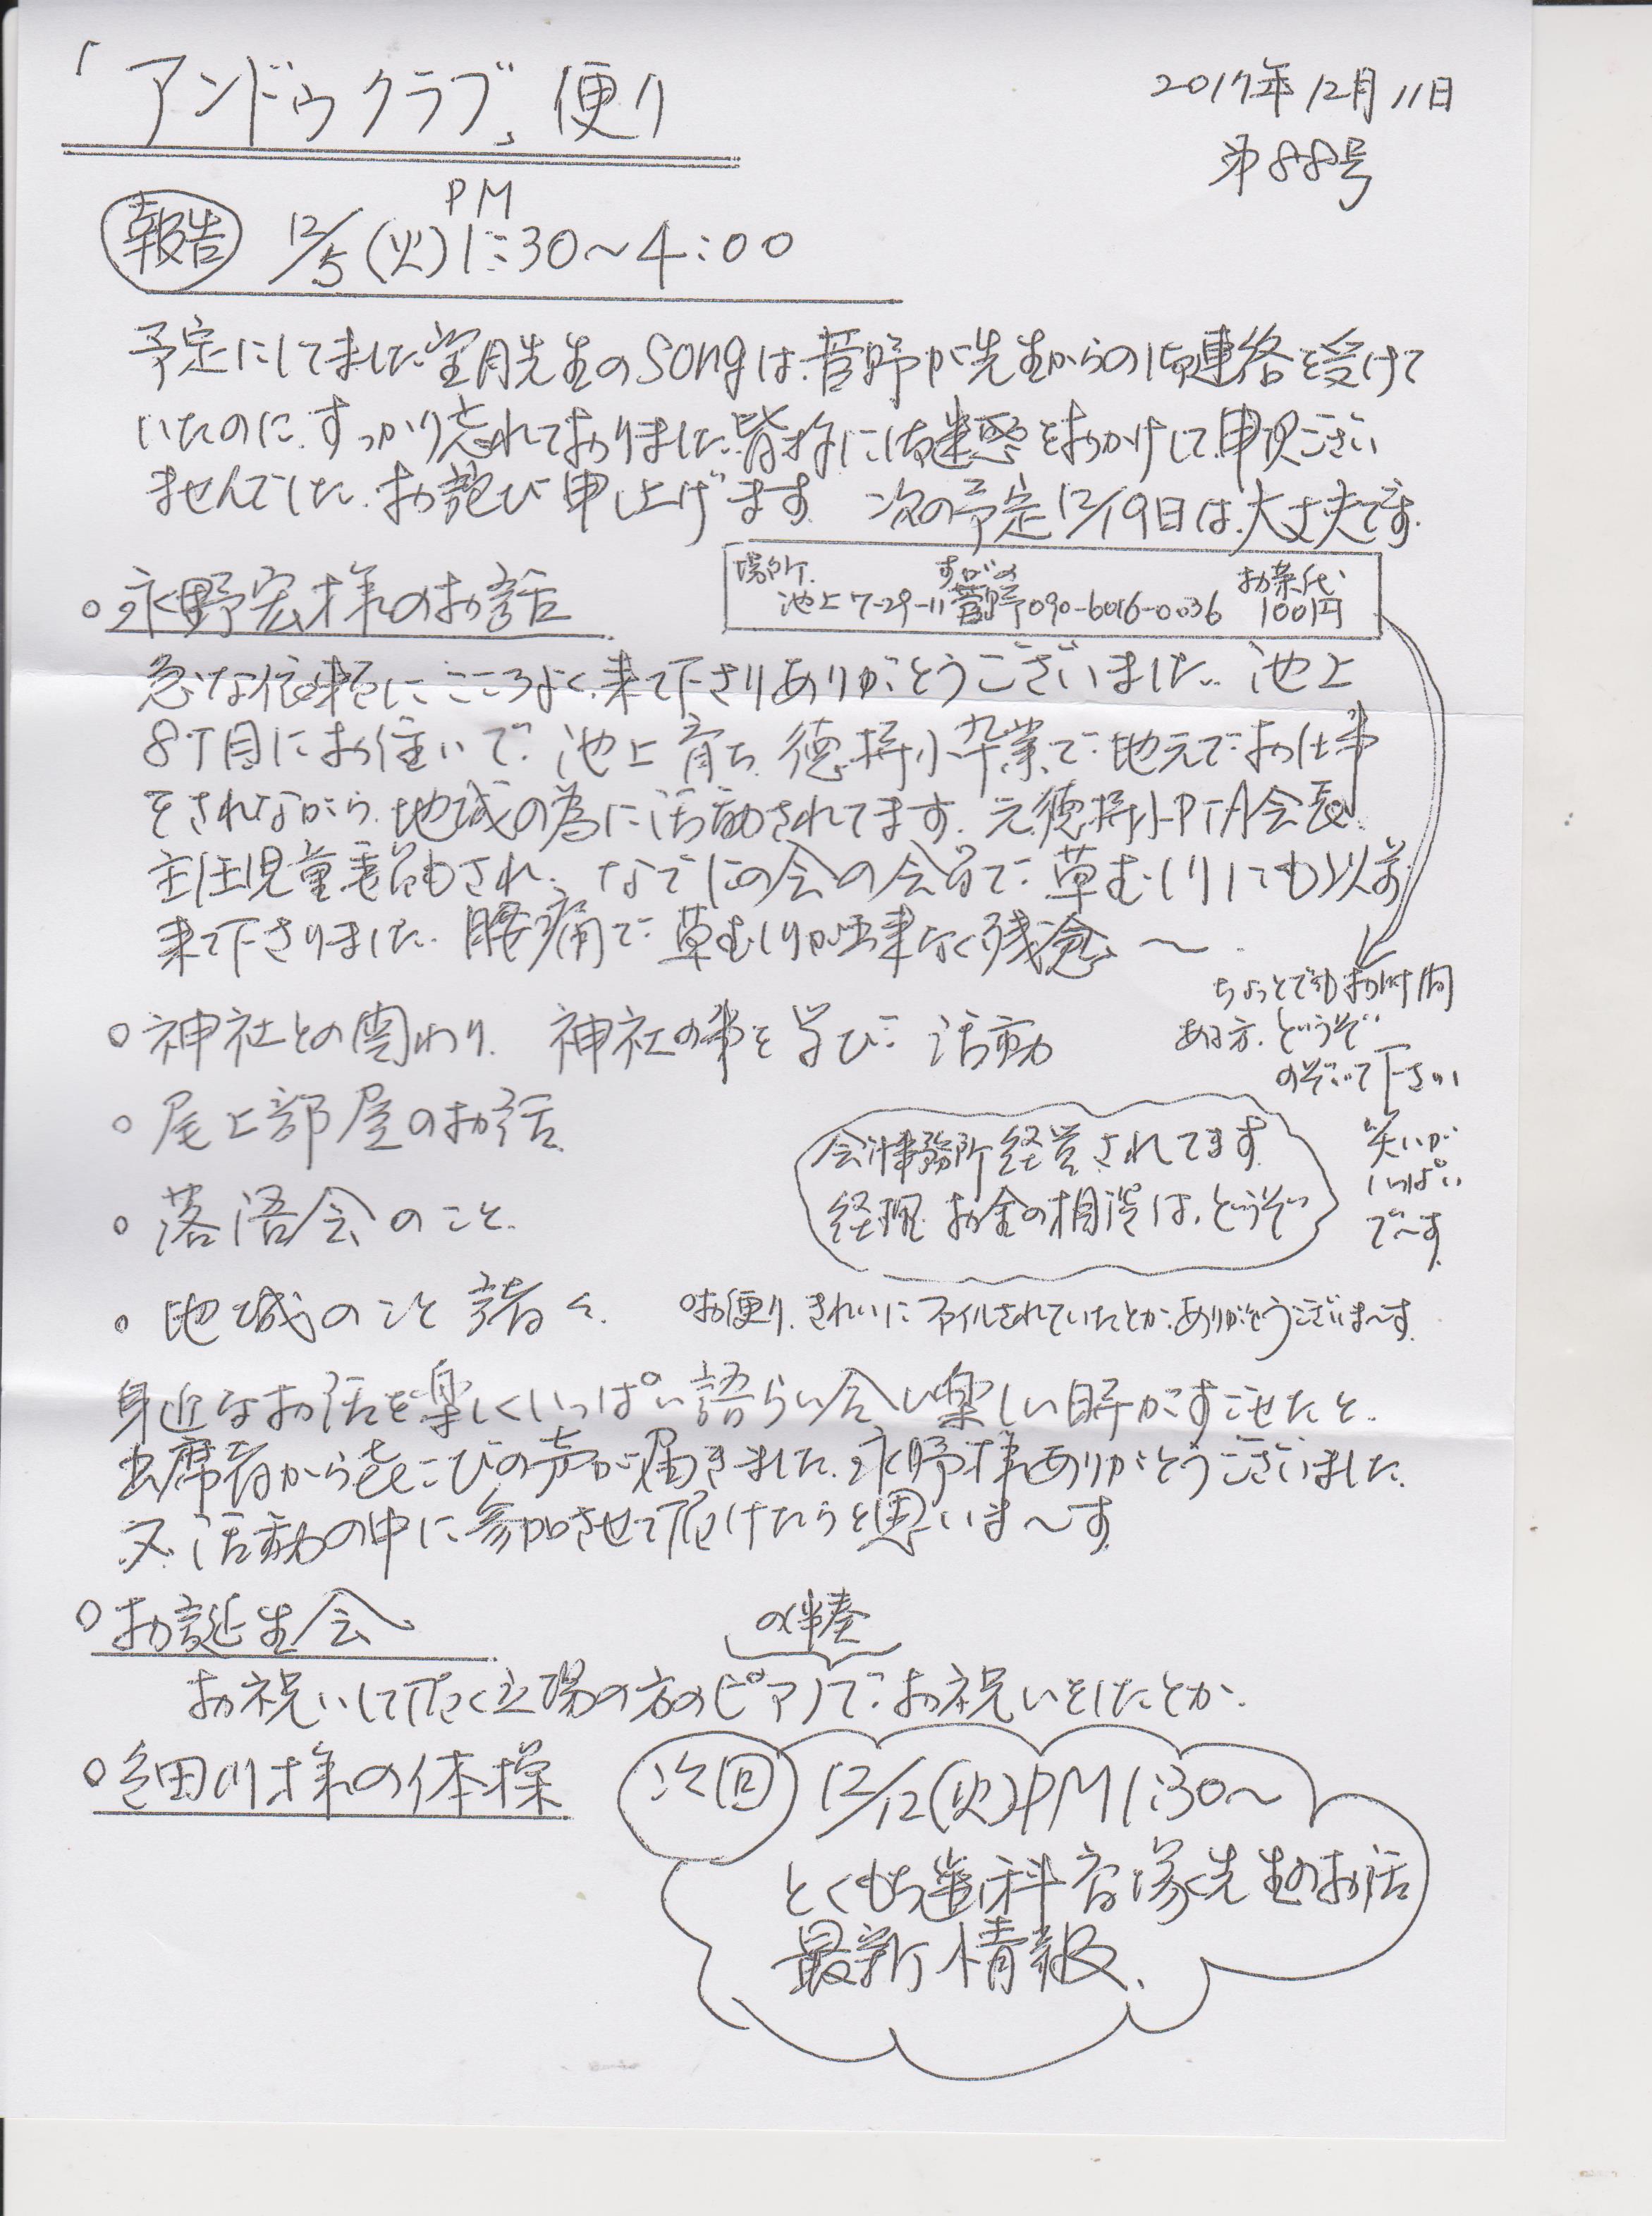 「アンドゥクラブ」便り
2017年12月11日
第88号
報告 12/5(火)PM1:30～4:00
予定にしてました望月先生のSongは、菅野が先生からの御連絡を受けて
いたのに、すっかり忘れておりました。皆様に御迷惑をおかけして、申訳ござい
ませんでした。お詫び申し上げます。 次の予定12/19日は、大丈夫です。
場所 池上7-29-11 菅野(すがの) 090-6016-0036 お茶代100円
○永野宏様のお話
急な依頼に、こころよく、来て下さりありがとうございました。池上
8丁目にお住いで、池上育ち、徳持小卒業で、地元でお仕事
をされながら、地域の為に活動されてます。元徳持小PTA会長
主任児童委員もされ、なでしこの会の会員で、草むしりにも以前
来て下さりました。腰痛で、草むしりが出来なく残念～
ちょっとでもお時間
ある方、どうぞ
のぞいて下さい
笑いが
いっぱい
で～す
○神社との関わり、 神社の事を学び、活動
○尾上部屋のお話
○落語会のこと
会計事務所経営されてます
経理 お金の相談は、どうぞ
○地域のこと 諸々
○お便り、きれいにファイルされていたとか、ありがとうございま～す。
身近なお話を楽しくいっぱい語らい合い楽しい時がすごせたと
出席者から喜こびの声が届きました。永野様ありがとうございました。
又、活動の中に参加させて頂けたらと思いま～す
○お誕生会
お祝いして頂く立場の方のピアノの伴奏で、お祝いをしたとか
○細田川様の体操
次回 12/12(火)PM1:30～
とくもち歯科 宮塚先生のお話
最新情報、